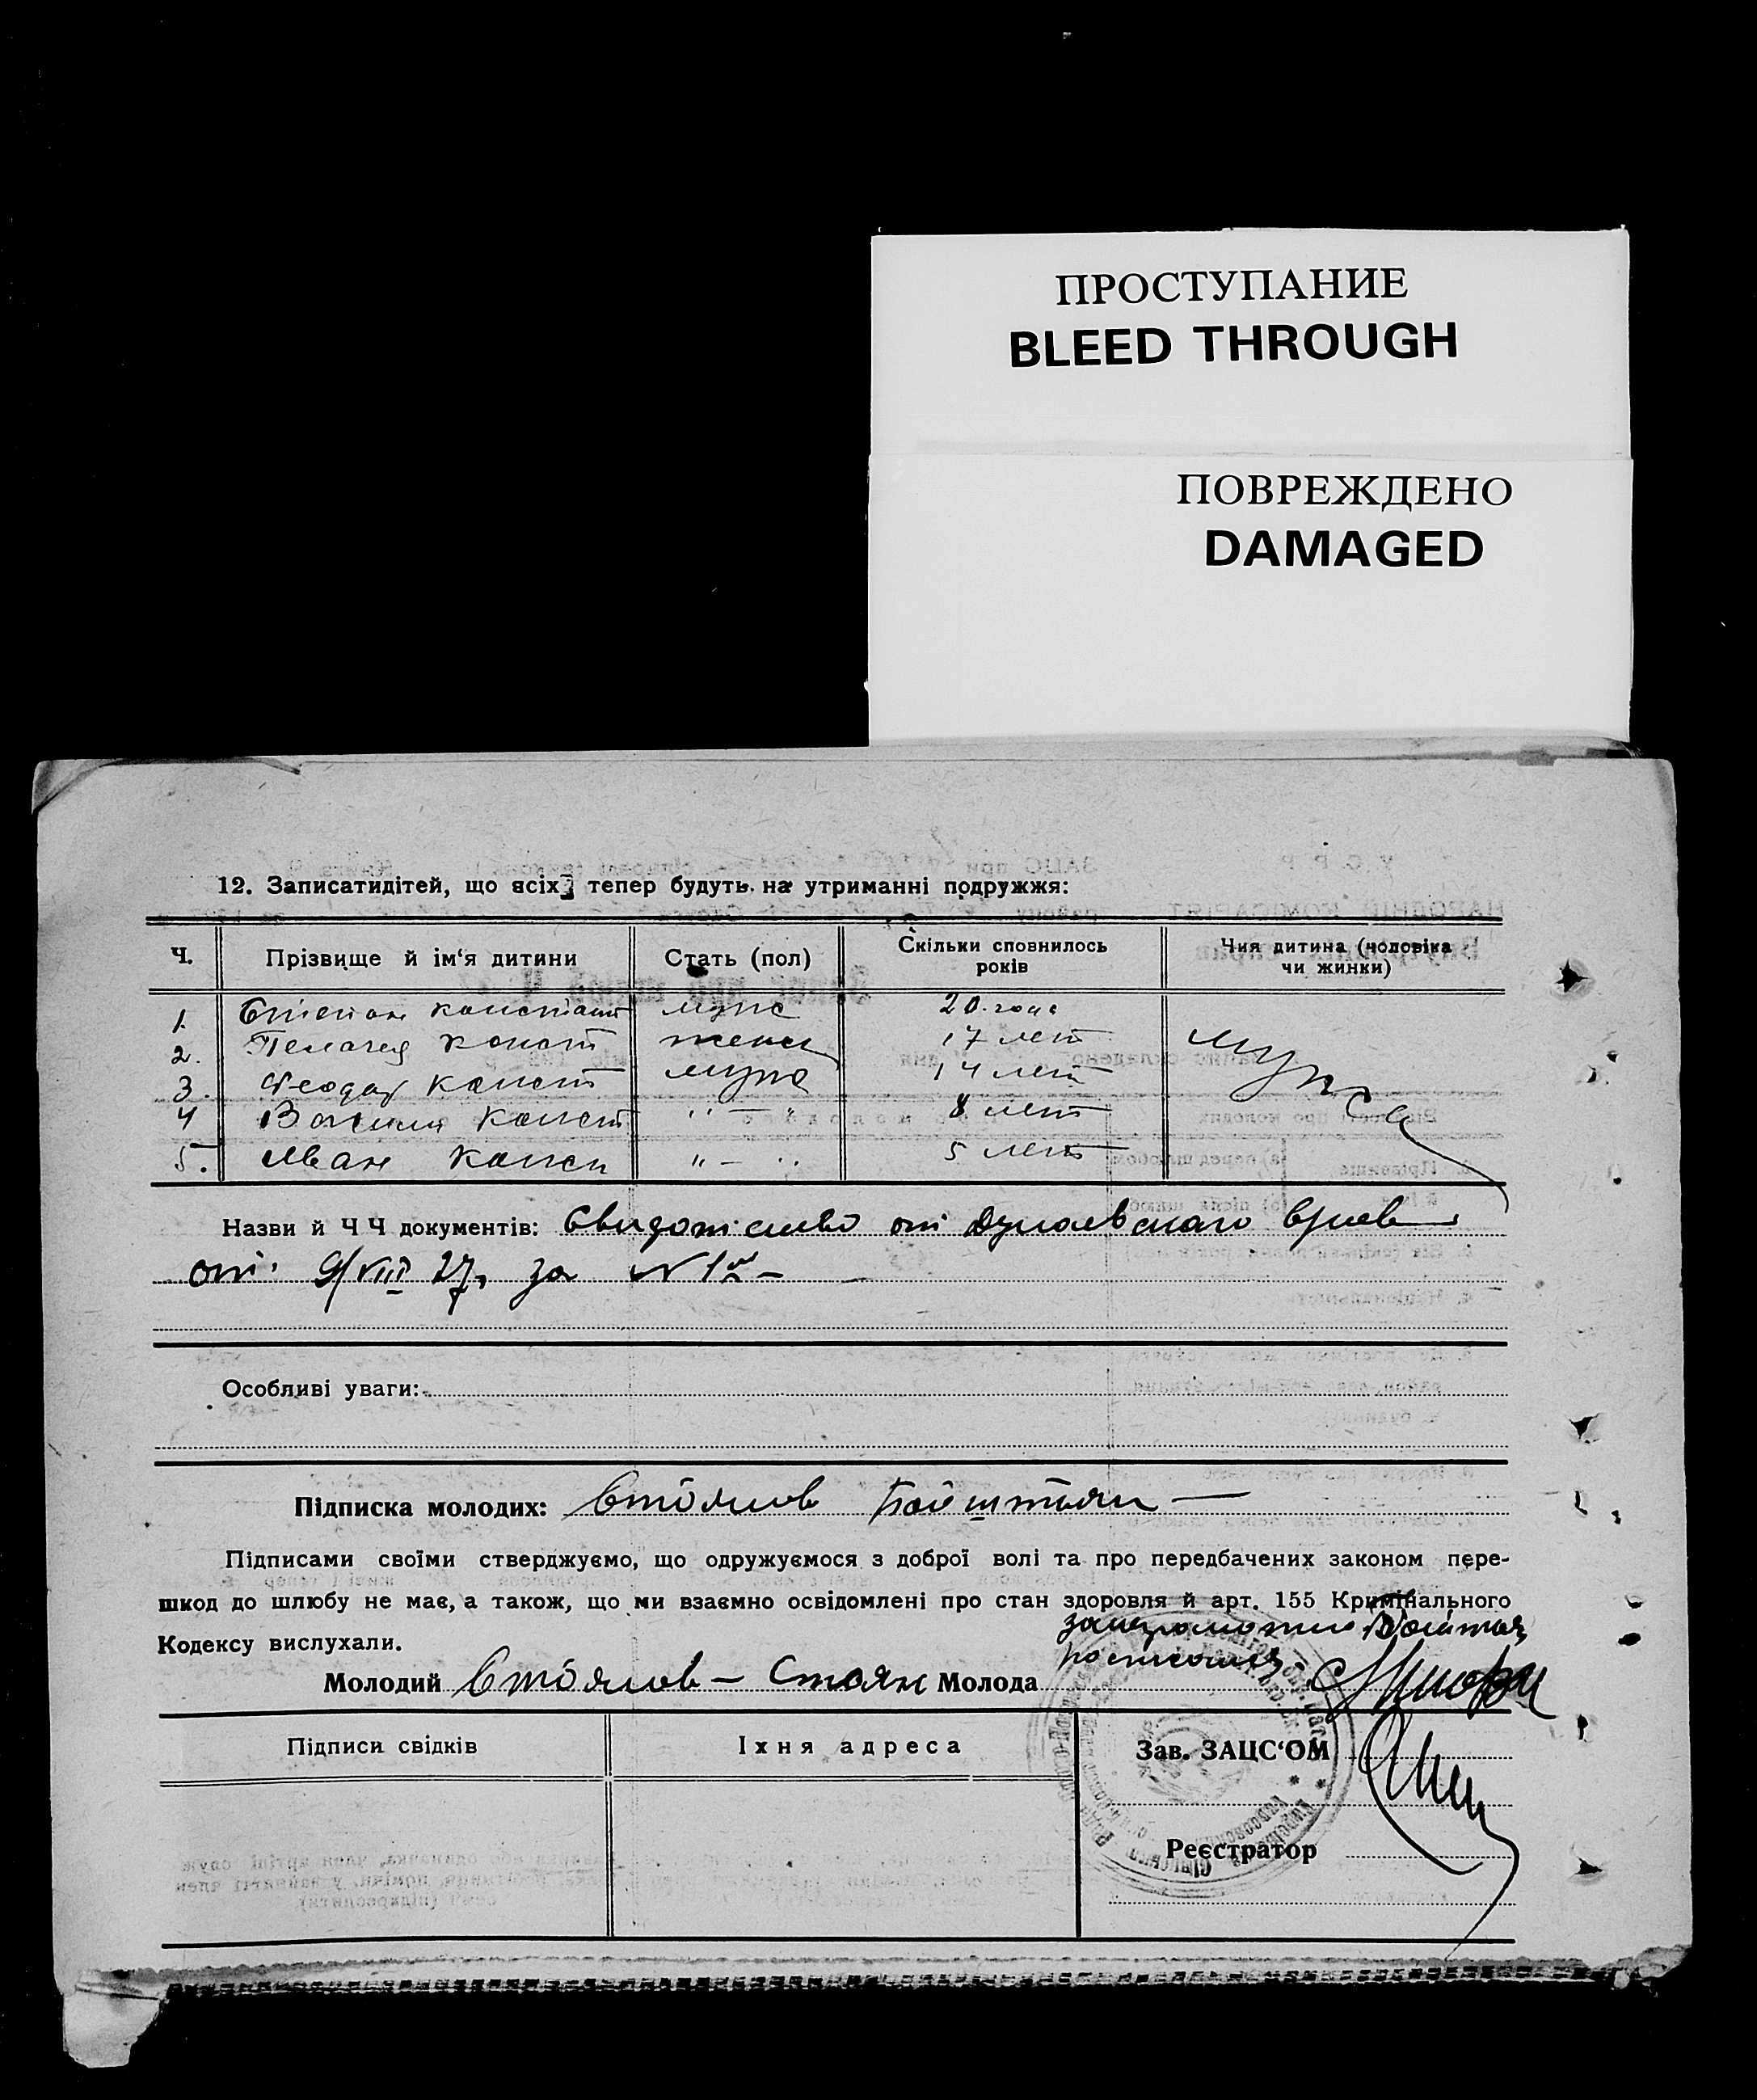 ПРОСТУПАНИЕ
BLEED THROUGH
ПОВРЕЖДЕНО
DAMAGED
12. Записатидітей, що всіх тепер будуть на утриманні подружжя:
Ч. Прізвище й ім‘я дитини Стать (пол) Скільки сповнилось років Чия дитина (чоловіка чи жинки)
1. Степан Констант муж 20. года
2. Пелагея Конст женс 17 лет мужа
3. Феодор Конст муж 14 лет
4 Василий Конст " — " 8 лет
5. Иван Конст " — " 5 лет
Назви й Ч Ч документів: Свидотелство от
от 9/VIII 27, за N 1
Особливі уваги:
Підписка молодих: Стоянов
Підписами своїми стверджуємо, що одружуємося з доброї волі та про передбачених законом пере-
шкод до шлюбу не має, а також, що ми взаємно освідомлені про стан здоровля й арт. 155 Кримінального
Кодексу вислухали.
Молодий Стоянов — Стоян Молода
Підписи свідків Їхня адреса Зав. ЗАЦС‘ОМ
Реєстратор